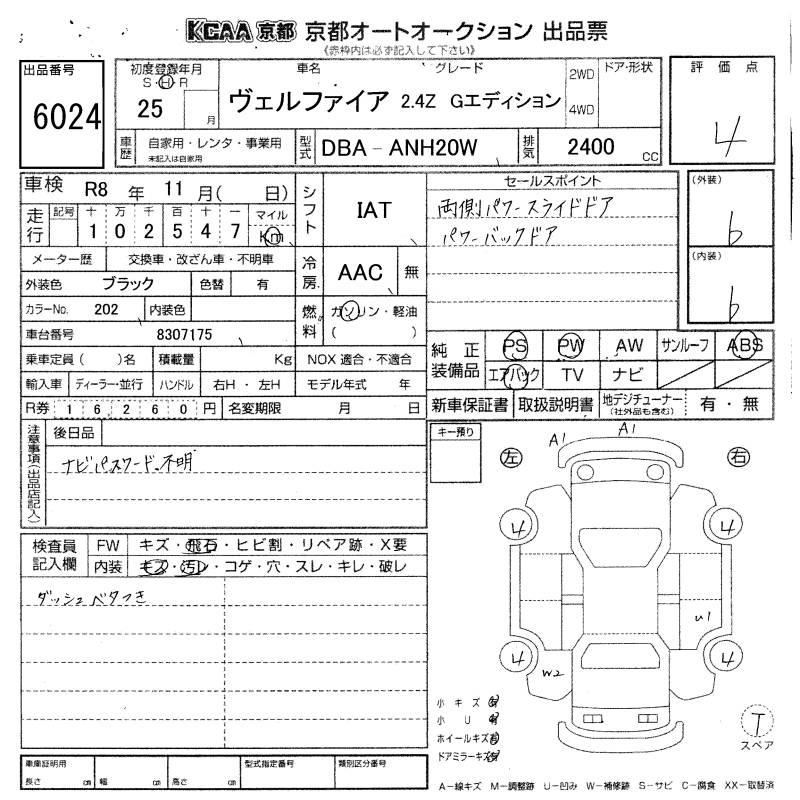 KCAA 京都 京都オートオークション 出品票
《赤枠内は必ず記入して下さい》
出品番号
6024
初度登録年月
S・H・R
25 月
車名
グレード
ヴェルファイア 2.4Z Gエディション
2WD
4WD
ドア・形状
評価点
4
車歴
自家用・レンタ・事業用
未記入は自家用
型式
DBA - ANH20W
排気
2400 CC
車検 R8 年 11 月( 日)
走行
記号 十 万 千 百 十 一
1 0 2 5 4 7
マイル
Km
メーター歴 交換車・改ざん車・不明車
外装色 ブラック 色替 有
カラーNo. 202 内装色
車台番号 8307175
乗車定員 ( )名 積載量 Kg NOX 適合・不適合
輸入車 ディーラー・並行 ハンドル 右H・左H モデル年式 年
R券 1 6 2 6 0 円 名変期限 月 日
シフト
IAT
冷房
AAC 無
燃料
ガソリン・軽油
( )
セールスポイント
両側パワースライドドア
パワーバックドア
(外装)
b
(内装)
b
純正装備品
PS PW AW サンルーフ ABS
エアバック TV ナビ
新車保証書 取扱説明書 地デジチューナー
(社外品も含む)
有・無
注意事項(出品店記入)
後日品
ナビパスワード不明
キー預り
検査員記入欄
FW キズ・飛石・ヒビ割・リペア跡・X要
内装 キズ・汚レ・コゲ・穴・スレ・キレ・破レ
ダッシュベタつき
A1 A1
左 右
4 4
U1
4 4
W2
小キズ
小 U
ホイールキズ
ドアミラーキズ
T
スペア
車庫証明用
長さ cm 幅 cm 高さ cm
型式指定番号
類別区分番号
A-線キズ M-調整跡 U-凹み W-補修跡 S-サビ C-腐食 XX-取替済